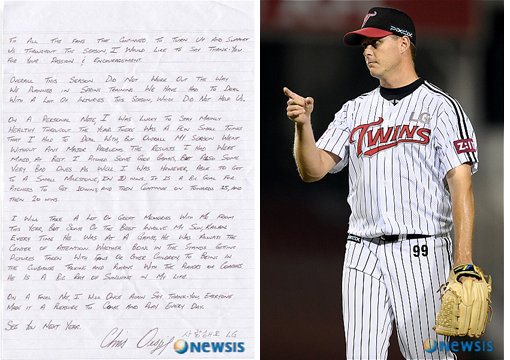 TO ALL THE FANS THAT CONTINUED TO TURN UP AND SUPPORT
US THROUGHOUT THE SEASON, I WOULD LIKE TO SAY THANK-YOU
FOR YOUR PASSION & ENCOURAGEMENT.
OVERALL THIS SEASON DID NOT WORK OUT THE WAY
WE PLANNED IN SPRING TRAINING. WE HAVE HAD TO DEAL
WITH A LOT OF INJURIES THIS SEASON, WHICH DID NOT HELP US.
ON A PERSONAL NOTE, I WAS LUCKY TO STAY MAINLY
HEALTHY THROUGHOUT THE YEAR. THERE WAS A FEW SMALL THINGS
THAT I HAD TO DEAL WITH BUT OVERALL MY SEASON WENT
WITHOUT ANY MAJOR PROBLEMS. THE RESULTS I HAD WERE
MIXED AT BEST. I PITCHED SOME GOOD GAMES, BUT ALSO SOME
VERY BAD ONES AS WELL. I WAS HOWEVER, ABLE TO GET
TO A SMALL MILESTONE IN 10 WINS. IT IS A BIG GOAL FOR
PITCHERS TO GET 10 WINS, AND THEN CONTINUE ON TOWARDS 15, AND
THEN 20 WINS.
I WILL TAKE A LOT OF GREAT MEMORIES WITH ME FROM
THIS YEAR, BUT SOME OF THE BEST INVOLVE MY SON,
EVERY TIME HE WAS AT A GAME, HE WAS ALWAYS THE
CENTER OF ATTENTION. WHETHER BEING IN THE STANDS GETTING
PICTURES TAKEN WITH FANS OR OTHER CHILDREN, TO BEING IN
THE CLUBHOUSE TALKING AND PLAYING WITH THE PLAYERS OR COACHES
HE IS A BIG RAY OF SUNSHINE IN MY LIFE.
ON A FINAL NOTE, I WILL ONCE AGAIN SAY THANK-YOU, EVERYONE
MADE IT A PLEASURE TO COME AND PLAY EVERY DAY.
SEE YOU NEXT YEAR.
Chris
사랑해요 LG
NEWSIS
T
PEXOX
LG
TWINS
99
NEWSIS